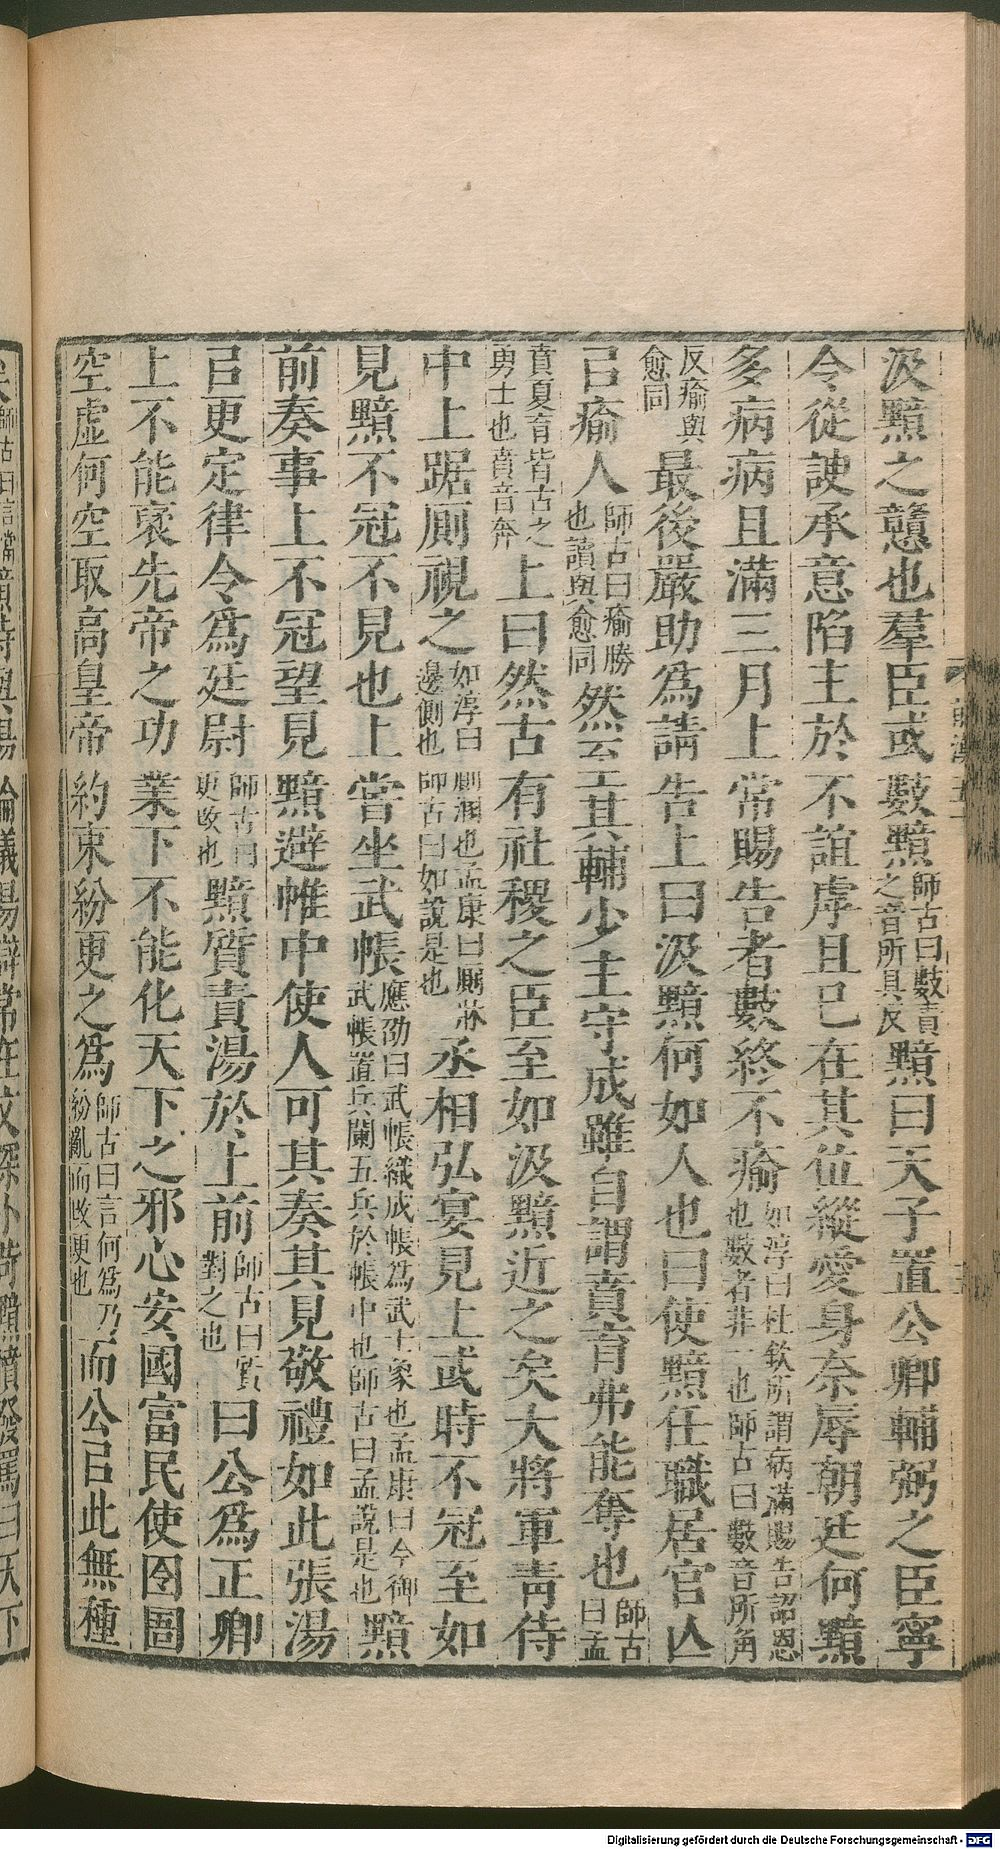 汲黯之戇也羣臣或數黯師古曰數責之音所具反黯曰天子置公卿輔弼之臣寧
令從諛承意陷主於不誼虖且已在其位縱愛身奈辱朝廷何黯
多病病且滿三月上常賜告者數終不瘉如淳曰杜欽所謂病滿賜告詔恩也數者非一也師古曰數音所角
反瘉與愈同最後嚴助爲請告上曰汲黯何如人也曰使黯任職居官亾
㠯瘉人師古曰瘉勝也讀與愈同然至其輔少主守成雖自謂賁育弗能奪也師古曰孟
賁夏育皆古之勇士也賁音奔上曰然古有社稷之臣至如汲黯近之矣大將軍靑侍
中上踞厠視之如淳曰厠溷也孟康曰厠牀邊側也師古曰如說是也丞相弘宴見上或時不冠至如
見黯不冠不見也上嘗坐武帳應劭曰武帳織成帳爲武士象也孟康曰今御武帳置兵闌五兵於帳中也師古曰孟說是也黯
前奏事上不冠望見黯避帷中使人可其奏其見敬禮如此張湯
㠯更定律令爲廷尉師古曰更改也黯質責湯於上前師古曰質對之也曰公爲正卿
上不能襃先帝之功業下不能化天下之邪心安國富民使囹圄
空虛何空取高皇帝約束紛更之爲師古曰言何爲乃紛亂而改更也而公㠯此無種
Digitalisierung gefördert durch die Deutsche Forschungsgemeinschaft - DFG